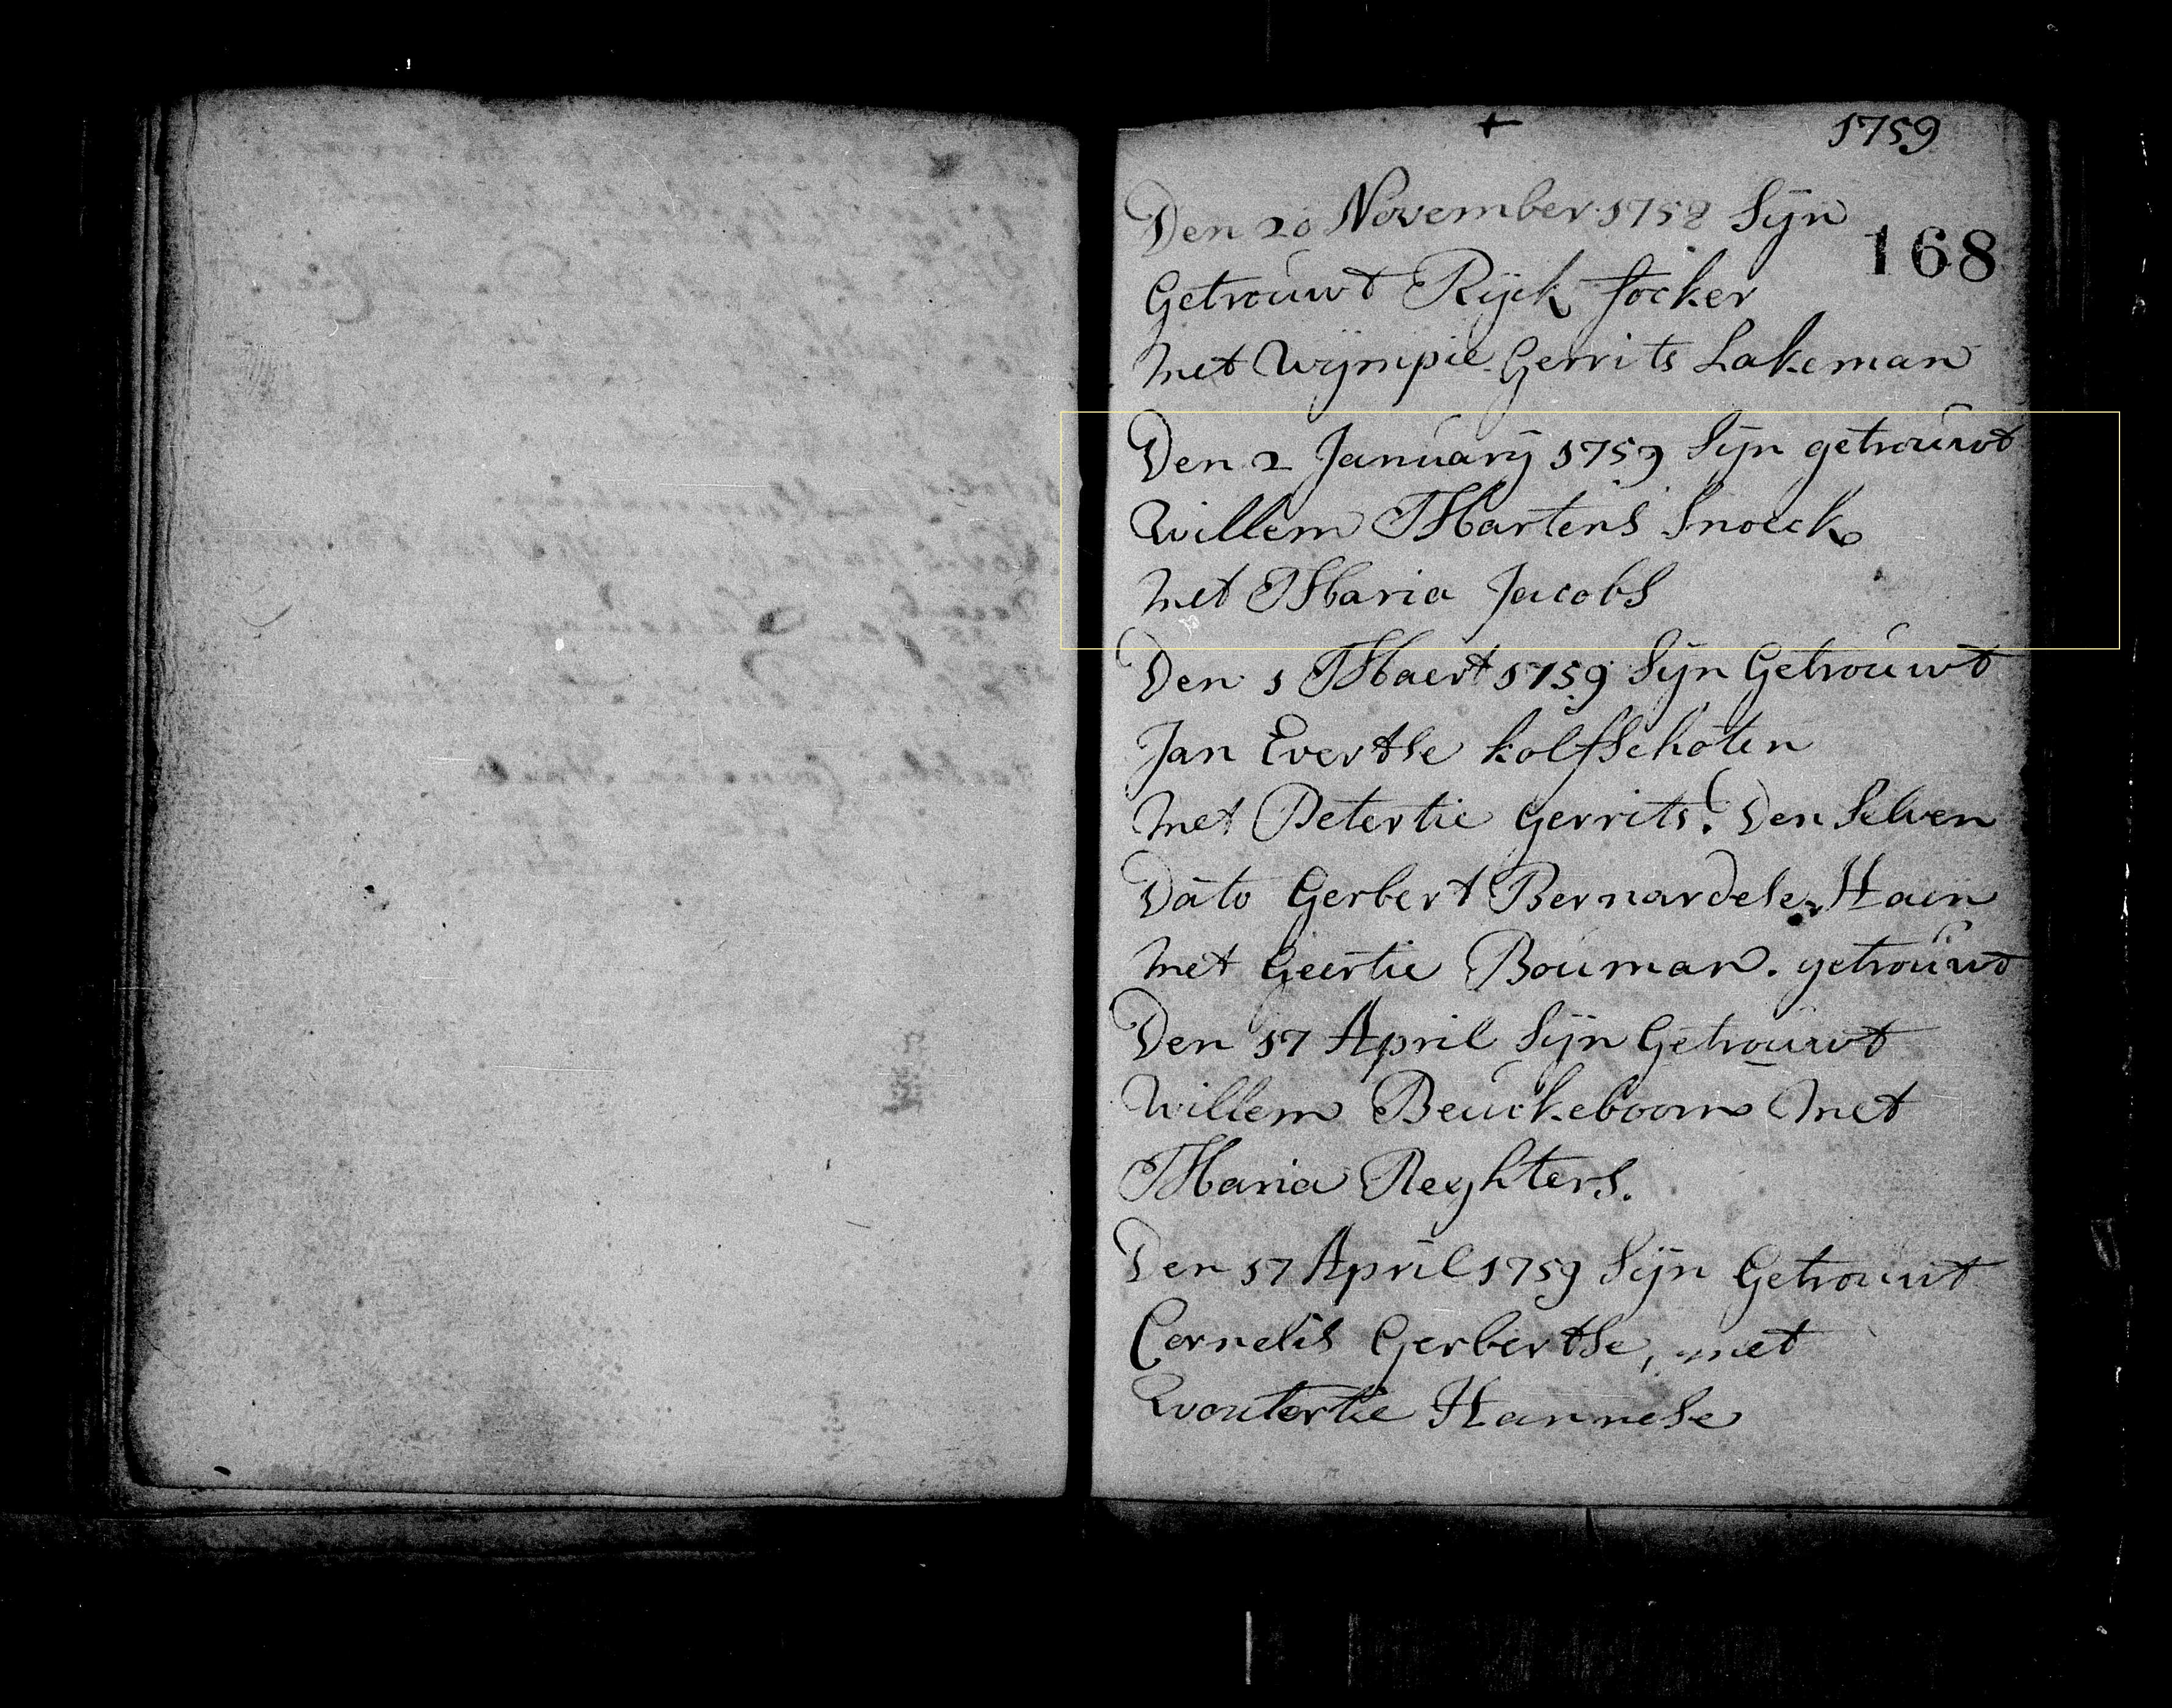 1759
Den 20 November 1758 Sijn
168
Getrouwt Rijck focker
met Wijmpie Gerrits Lakeman
Den 2 Januarij 1759 Sijn getrouwt
Willem Martens Snoeck
met Maria Jacobs
Den 1 Maert 1759 Sijn Getrouwt
Jan Evertse kolfschoten
met Petertie Gerrits. Den Selven
Dato Gerbert Bernardese Haen
met Geertie Bouman. getrouwt
Den 17 April Sijn Getrouwt
Willem Beuckeboom met
Maria Reghters.
Den 17 April 1759 Sijn Getrouwt
Cornelis Gerbertse, met
Woutertie Hannese